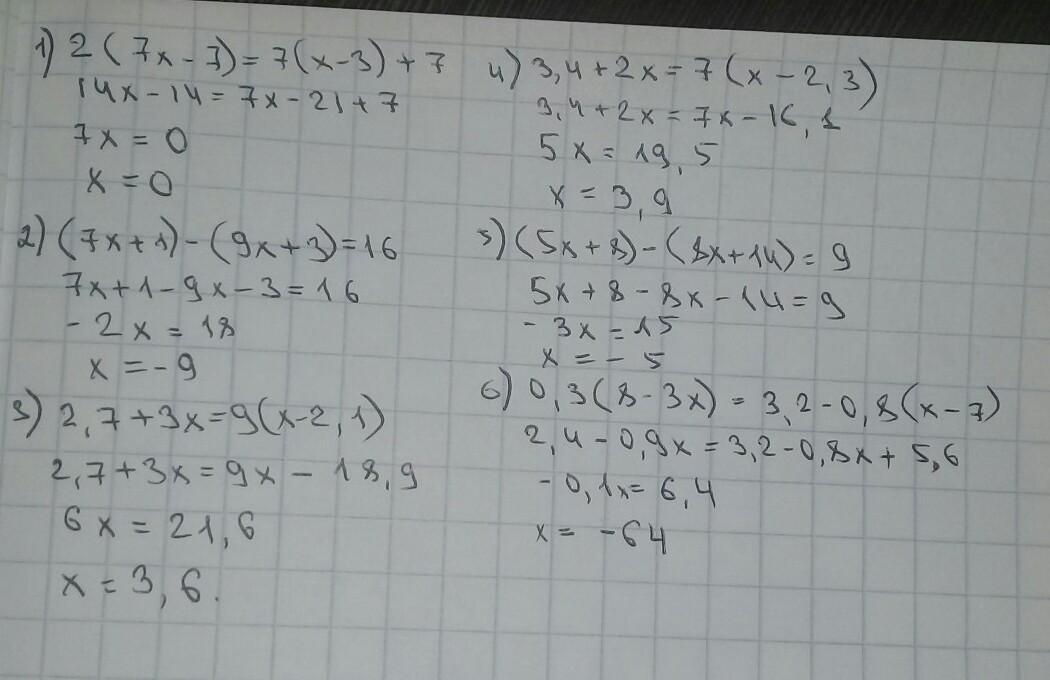 1) 2(7x-7)=7(x-3)+7
14x-14=7x-21+7
7x=0
x=0
2) (7x+1)-(9x+3)=16
7x+1-9x-3=16
-2x=18
x=-9
3) 2,7+3x=9(x-2,1)
2,7+3x=9x-18,9
6x=21,6
x=3,6.
4) 3,4+2x=7(x-2,3)
3,4+2x=7x-16,1
5x=19,5
x=3,9
5) (5x+8)-(8x+14)=9
5x+8-8x-14=9
-3x=15
x=-5
6) 0,3(8-3x)=3,2-0,8(x-7)
2,4-0,9x=3,2-0,8x+5,6
-0,1x=6,4
x=-64